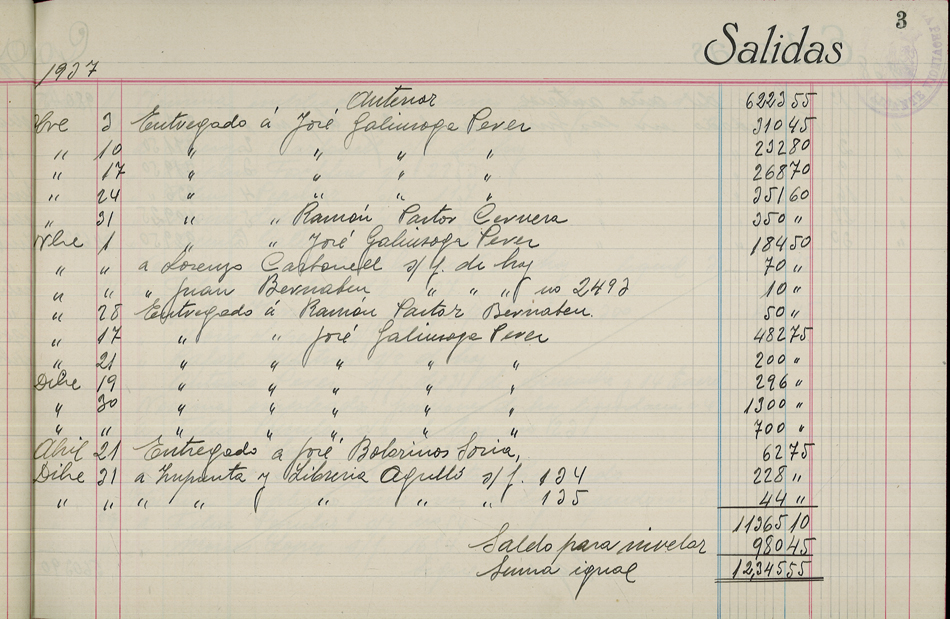 3
Salidas
1937
Anterior 6223 55
8bre 3 Entregado á José Galiusoga Pever 310 45
" 10 " " " " 232 80
" 17 " " " " 268 70
" 24 " " " " 351 60
" 31 " " Ramón Pastor Cervera 350 "
Nbre 1 " " José Galiusoga Pever 184 50
" " a Lorenzo Carbonell s/f. de hoy 70 "
" " " Juan Bernabeu " " " no 2493 10 "
" 28 Entregado á Ramón Pastor Bernabeu. 50 "
" 17 " " José Galiusoga Pever 482 75
" 21 " " " " " 200 "
Dibe 19 " " " " " 296 "
" 30 " " " " " 1300 "
" " " " " " " 700 "
Abril 21 Entregado a José Bolarinos Soria, 62 75
Dibe 31 a Imprenta y Libreria Agulló s/f. 134 228 "
" " " " " " " 135 44 "
11365 10
Saldo para nivelar 980 45
Suma igual 12,345 55